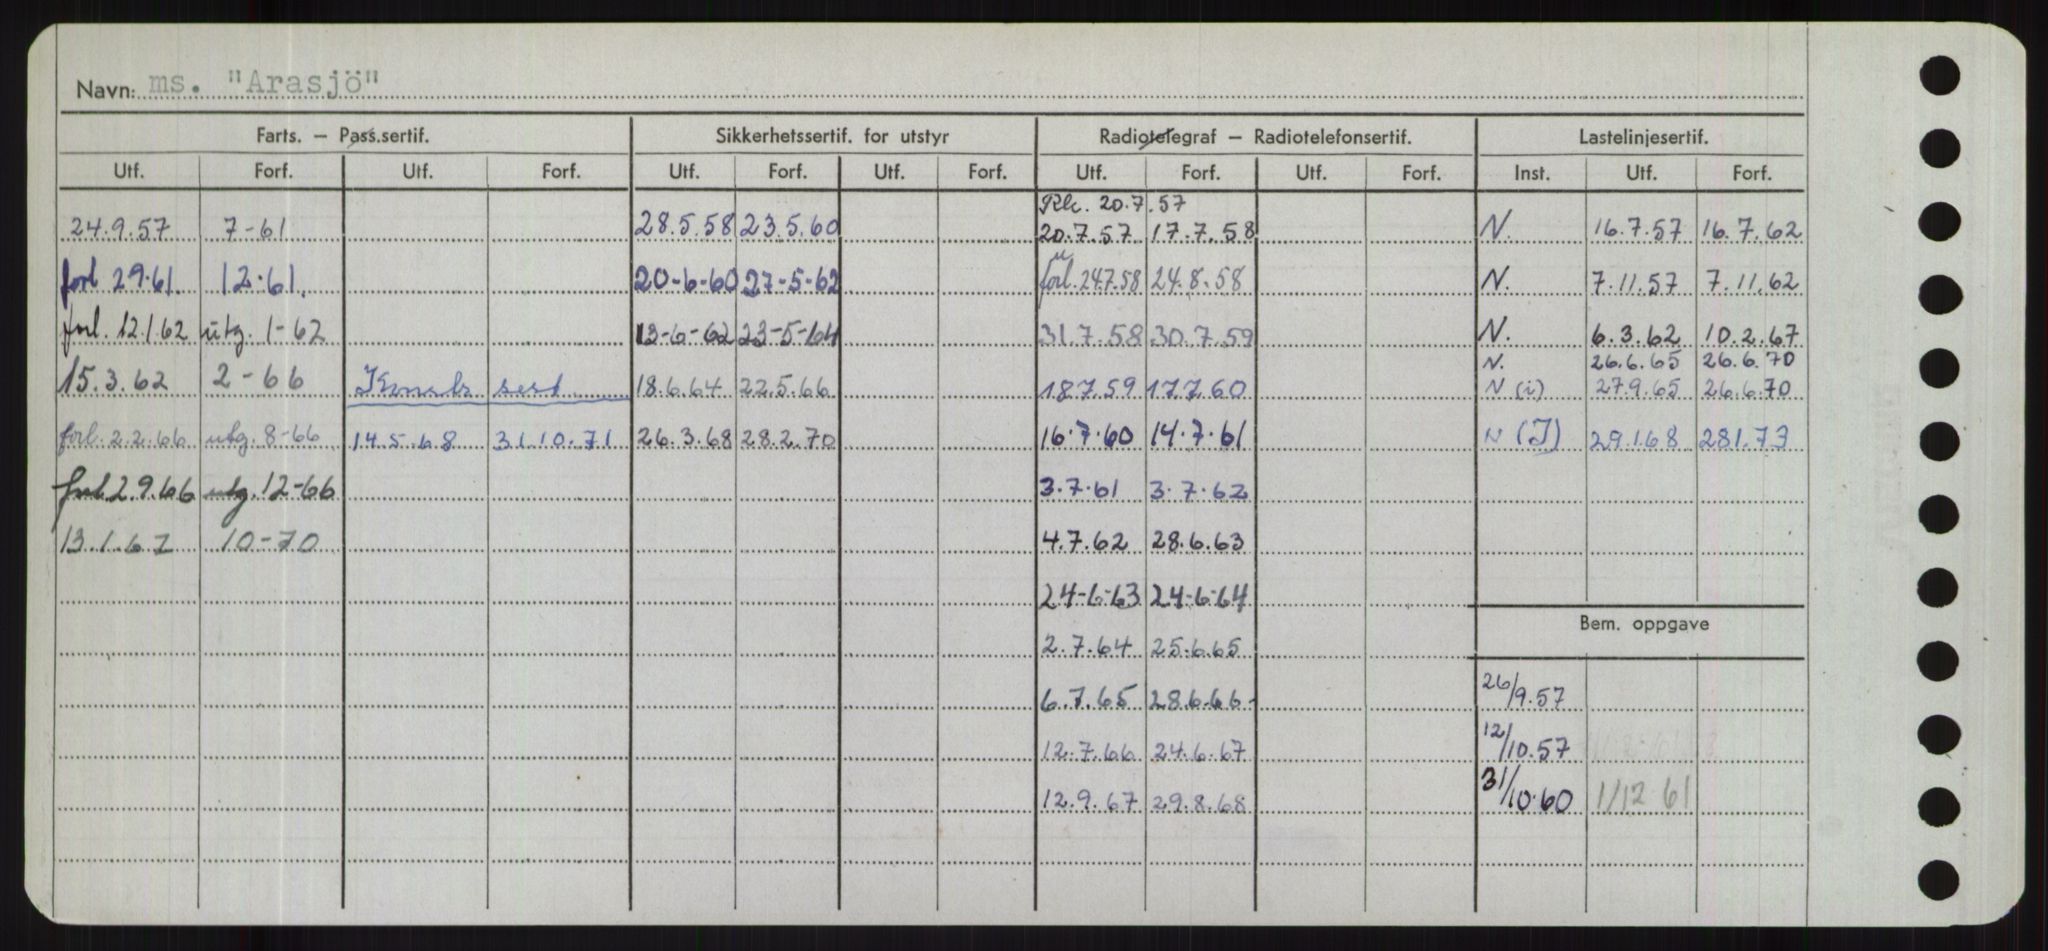 Navn: ms. "Arasjö"
Farts. — Pass.sertif. Sikkerhetssertif. for utstyr Radiotelegraf — Radiotelefonsertif. Lastelinjesertif.
Utf. Forf. Utf. Forf. Utf. Forf. Utf. Forf. Utf. Forf. Utf. Forf. Inst. Utf. Forf.
20.7.57
24.9.57 7-61 28.5.58 23.5.60 20.7.57 17.7.58 N. 16.7.57 16.7.62
forl 2.9.61. 12.61. 20-6-60 27-5-62 forl. 24.7.58 24.8.58 N. 7.11.57 7.11.62
forl. 12.1.62 utg. 1-62 13-6-62 23-5-64 31.7.58 30.7.59 N. 6.3.62 10.2.67
N. 26.6.65 26.6.70
15.3.62 2-66 Konstr. sert. 18.6.64 22.5.66 18.7.59 17.7.60 N (i) 27.9.65 26.6.70
forl. 2.2.66 utg. 8-66 14.5.68 31.10.71 26.3.68 28.2.70 16.7.60 14.7.61 N (I) 29.1.68 28.1.73
forl. 2.9.66 utg. 12-66 3.7.61 3.7.62
13.1.67 10-70 4.7.62 28.6.63
24-6-63 24-6-64
Bem. oppgave
2.7.64 25.6.65
6.7.65 28.6.66- 26/9.57
12.7.66 24.6.67 12/10.57
12.9.67 29.8.68 31/10.60 1/12 61